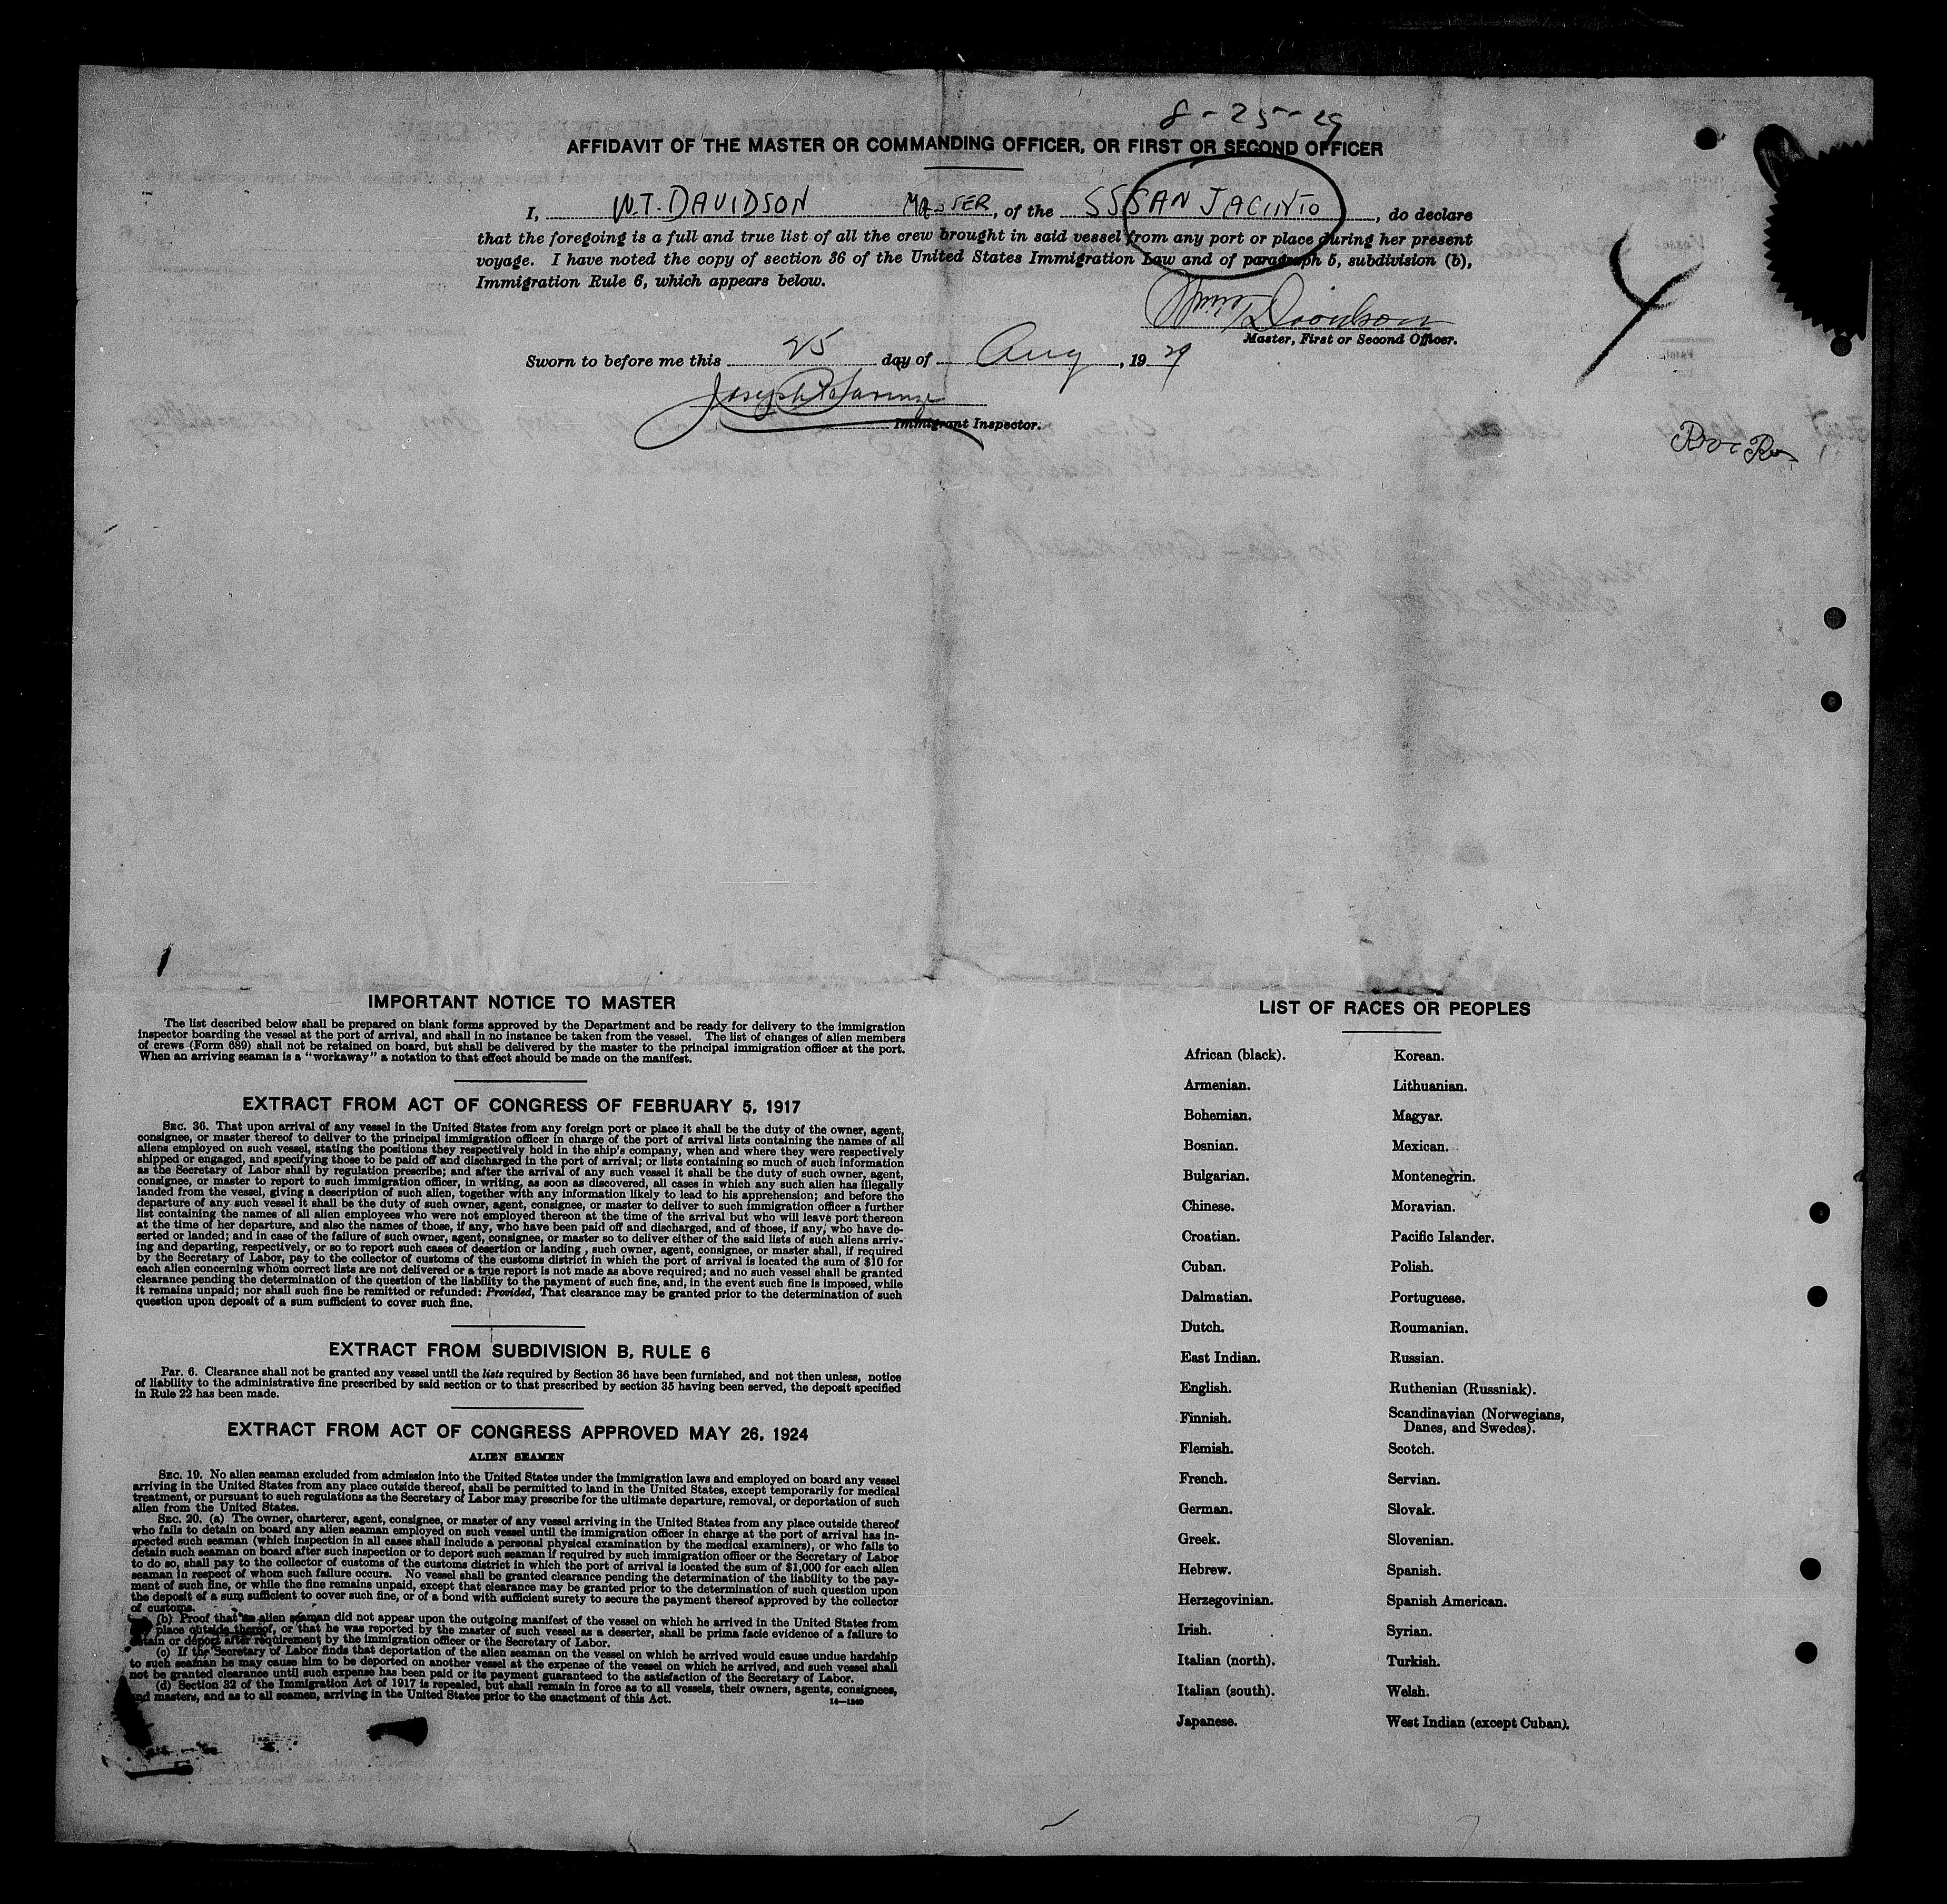 8-25-29
AFFIDAVIT OF THE MASTER OR COMMANDING OFFICER, OR FIRST OR SECOND OFFICER
I, W.T. DAVIDSON MASTER, of the SS SAN JACINTO, do declare
that the foregoing is a full and true list of all the crew brought in said vessel from any port or place during her present
voyage. I have noted the copy of section 36 of the United States Immigration Law and of paragraph 5, subdivision (b),
Immigration Rule 6, which appears below.
4
Davidson
Master, First or Second Officer.
Sworn to before me this 25 day of Aug, 1929
Joseph
Immigrant Inspector.
IMPORTANT NOTICE TO MASTER
The list described below shall be prepared on blank forms approved by the Department and be ready for delivery to the immigration
inspector boarding the vessel at the port of arrival, and shall in no instance be taken from the vessel. The list of changes of alien members
of crews (Form 689) shall not be retained on board, but shall be delivered by the master to the principal immigration officer at the port.
When an arriving seaman is a "workaway" a notation to that effect should be made on the manifest.
EXTRACT FROM ACT OF CONGRESS OF FEBRUARY 5, 1917
SEC. 36. That upon arrival of any vessel in the United States from any foreign port or place it shall be the duty of the owner, agent,
consignee, or master thereof to deliver to the principal immigration officer in charge of the port of arrival lists containing the names of all
aliens employed on such vessel, stating the positions they respectively hold in the ship's company, when and where they were respectively
shipped or engaged, and specifying those to be paid off and discharged in the port of arrival; or lists containing so much of such information
as the Secretary of Labor shall by regulation prescribe; and after the arrival of any such vessel it shall be the duty of such owner, agent,
consignee, or master to report to such immigration officer, in writing, as soon as discovered, all cases in which any such alien has illegally
landed from the vessel, giving a description of such alien, together with any information likely to lead to his apprehension; and before the
departure of any such vessel it shall be the duty of such owner, agent, consignee, or master to deliver to such immigration officer a further
list containing the names of all alien employees who were not employed thereon at the time of the arrival but who will leave port thereon
at the time of her departure, and also the names of those, if any, who have been paid off and discharged, and of those, if any, who have de-
serted or landed; and in case of the failure of such owner, agent, consignee, or master so to deliver either of the said lists of such aliens arriv-
ing and departing, respectively, or so to report such cases of desertion or landing, such owner, agent, consignee, or master shall, if required
by the Secretary of Labor, pay to the collector of customs of the customs district in which the port of arrival is located the sum of $10 for
each alien concerning whom correct lists are not delivered or a true report is not made as above required; and no such vessel shall be granted
clearance pending the determination of the question of the liability to the payment of such fine, and, in the event such fine is imposed, while
it remains unpaid; nor shall such fine be remitted or refunded: Provided, That clearance may be granted prior to the determination of such
question upon deposit of a sum sufficient to cover such fine.
EXTRACT FROM SUBDIVISION B, RULE 6
Par. 6. Clearance shall not be granted any vessel until the lists required by Section 36 have been furnished, and not then unless, notice
of liability to the administrative fine prescribed by said section or to that prescribed by section 35 having been served, the deposit specified
in Rule 22 has been made.
EXTRACT FROM ACT OF CONGRESS APPROVED MAY 26, 1924
ALIEN SEAMEN
SEC. 19. No alien seaman excluded from admission into the United States under the immigration laws and employed on board any vessel
arriving in the United States from any place outside thereof, shall be permitted to land in the United States, except temporarily for medical
treatment, or pursuant to such regulations as the Secretary of Labor may prescribe for the ultimate departure, removal, or deportation of such
alien from the United States.
SEC. 20. (a) The owner, charterer, agent, consignee, or master of any vessel arriving in the United States from any place outside thereof
who fails to detain on board any alien seaman employed on such vessel until the immigration officer in charge at the port of arrival has in-
spected such seaman (which inspection in all cases shall include a personal physical examination by the medical examiners), or who fails to
detain such seaman on board after such inspection or to deport such seaman if required by such immigration officer or the Secretary of Labor
to do so, shall pay to the collector of customs of the customs district in which the port of arrival is located the sum of $1,000 for each alien
seaman in respect of whom such failure occurs. No vessel shall be granted clearance pending the determination of the liability to the pay-
ment of such fine, or while the fine remains unpaid, except that clearance may be granted prior to the determination of such question upon
the deposit of a sum sufficient to cover such fine, or of a bond with sufficient surety to secure the payment thereof approved by the collector
of customs.
(b) Proof that an alien seaman did not appear upon the outgoing manifest of the vessel on which he arrived in the United States from
place outside thereof, or that he was reported by the master of such vessel as a deserter, shall be prima facie evidence of a failure to
detain or deport after requirement by the immigration officer or the Secretary of Labor.
(c) If the Secretary of Labor finds that deportation of the alien seaman on the vessel on which he arrived would cause undue hardship
to such seaman he may cause him to be deported on another vessel at the expense of the vessel on which he arrived, and such vessel shall
not be granted clearance until such expense has been paid or its payment guaranteed to the satisfaction of the Secretary of Labor.
(d) Section 32 of the Immigration Act of 1917 is repealed, but shall remain in force as to all vessels, their owners, agents, consignees,
and masters, and as to all seamen, arriving in the United States prior to the enactment of this Act.
14—1240
LIST OF RACES OR PEOPLES
African (black). Korean.
Armenian. Lithuanian.
Bohemian. Magyar.
Bosnian. Mexican.
Bulgarian. Montenegrin.
Chinese. Moravian.
Croatian. Pacific Islander.
Cuban. Polish.
Dalmatian. Portuguese.
Dutch. Roumanian.
East Indian. Russian.
English. Ruthenian (Russniak).
Finnish. Scandinavian (Norwegians,
Danes, and Swedes).
Flemish. Scotch.
French. Servian.
German. Slovak.
Greek. Slovenian.
Hebrew. Spanish.
Herzegovinian. Spanish American.
Irish. Syrian.
Italian (north). Turkish.
Italian (south). Welsh.
Japanese. West Indian (except Cuban).